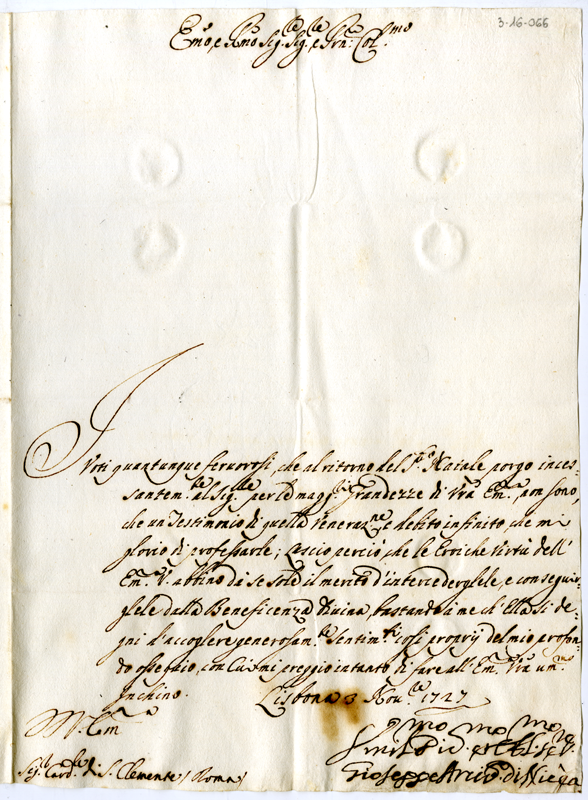 3-16-066
Em.o, e R.mo Sig. Sig.le, e Prn. Col.mo
I Voti quantunque feruorosi, che al ritorno del S.to Natale porgo inces-
santem.te al Sig.re per le magg.ri Grandezze di Vra Em.a, non sono,
che un Testimonio di quella Veneraz.ne, e debito infinito, che mi
glorio di professarle; Lascio perciò, che le Eroiche Virtù dell'
Em.a V.a abbino da se sole il merito d'intercederglele, e conseguir-
glele dalla Beneficenza Diuina, bastandosi me ch'Ella si de-
gni d'accogliere generosam.te Sentim.ti così proprij del mio profon-
do ossequio, con Cui mi preggio intanto di fare all'Em.a Vra um.mo
Inchino. Lisbona 3 Nou.bre 1727
Sig.r Card.le di S. Clemente / Roma /
Gioseppe Arciu.o di Nicea